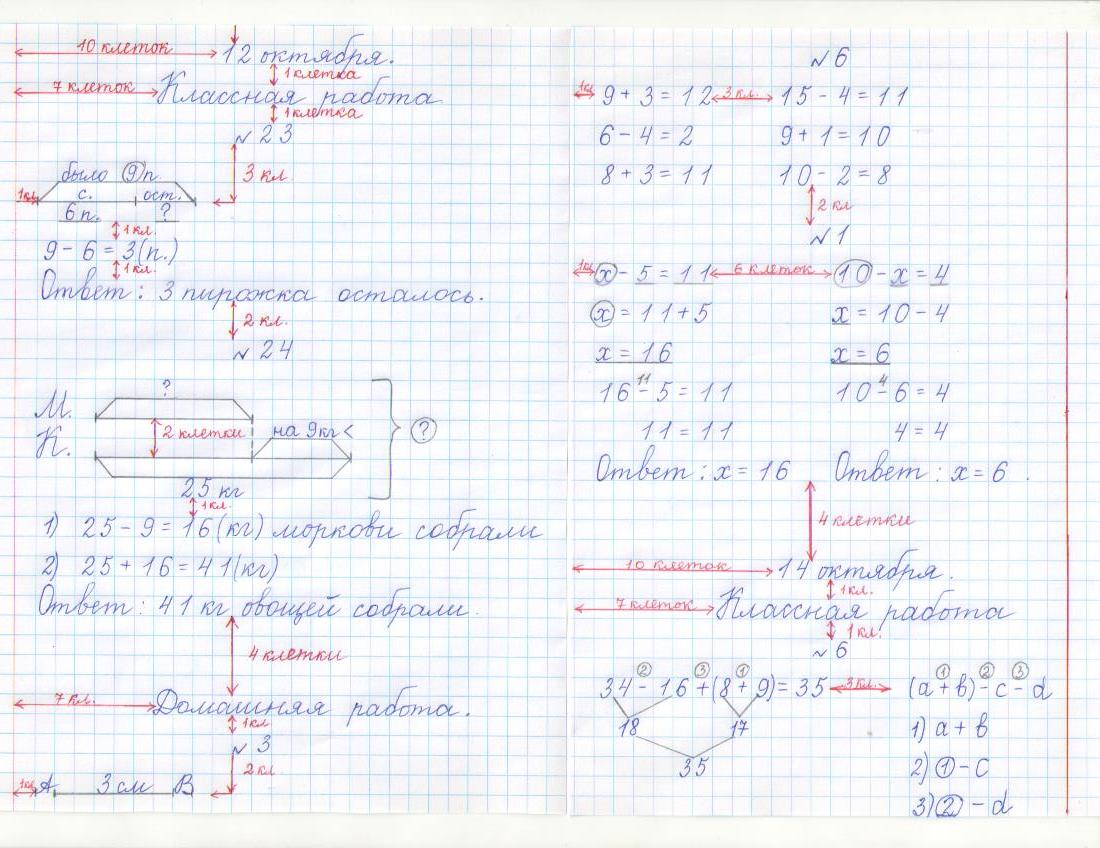 10 клеток 12 октября.
1 клетка
7 клеток Классная работа
1 клетка
№ 23
3 кл
было 9 п.
1кл. с. ост.
6 п. ?
1 кл.
9 - 6 = 3 (п.)
1 кл.
Ответ: 3 пирожка осталось.
2 кл.
№ 24
?
М.
2 клетки на 9 кг < ?
К.
25 кг
1 кл.
1) 25 - 9 = 16 (кг) моркови собрали
2) 25 + 16 = 41 (кг)
Ответ: 41 кг овощей собрали.
4 клетки
7 кл. Домашняя работа.
1 кл
№ 3
2 кл.
1кл A 3 см B
№ 6
1кл 9 + 3 = 12 3 кл. 15 - 4 = 11
6 - 4 = 2 9 + 1 = 10
8 + 3 = 11 10 - 2 = 8
2 кл
№ 1
1кл x - 5 = 11 6 клеток 10 - x = 4
x = 11 + 5 x = 10 - 4
x = 16 x = 6
11 4
16 - 5 = 11 10 - 6 = 4
11 = 11 4 = 4
Ответ: x = 16 Ответ: x = 6.
4 клетки
10 клеток 14 октября.
1 кл.
7 клеток Классная работа
1 кл.
№ 6
2 3 1 1 2 3
34 - 16 + (8 + 9) = 35 3 кл. (a + b) - c - d
18 17 1) a + b
35 2) 1 - c
3) 2 - d